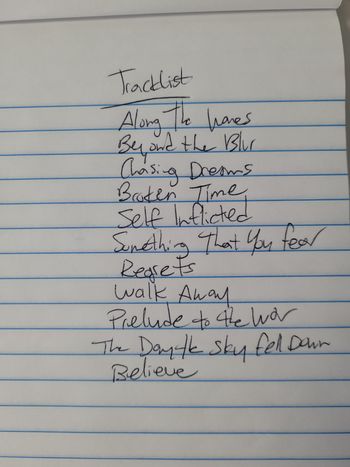 Tracklist
Along The Waves
Beyond the Blur
Chasing Dreams
Broken Time
Self Inflicted
Something That You fear
Regrets
Walk Away
Prelude to the War
The Day the Sky Fell Down
Believe